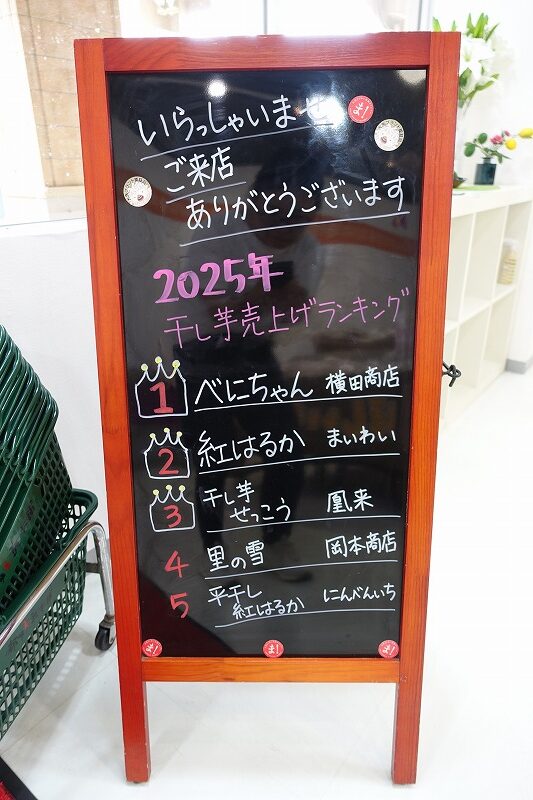 いらっしゃいませ
ご来店
ありがとうございます
2025年
干し芋売上げランキング
1 べにちゃん 横田商店
2 紅はるか まいわい
3 干し芋 せっこう 凰来
4 里の雪 岡本商店
5 平干し 紅はるか にんべんいち
そ!
そ!
ま!
そ!